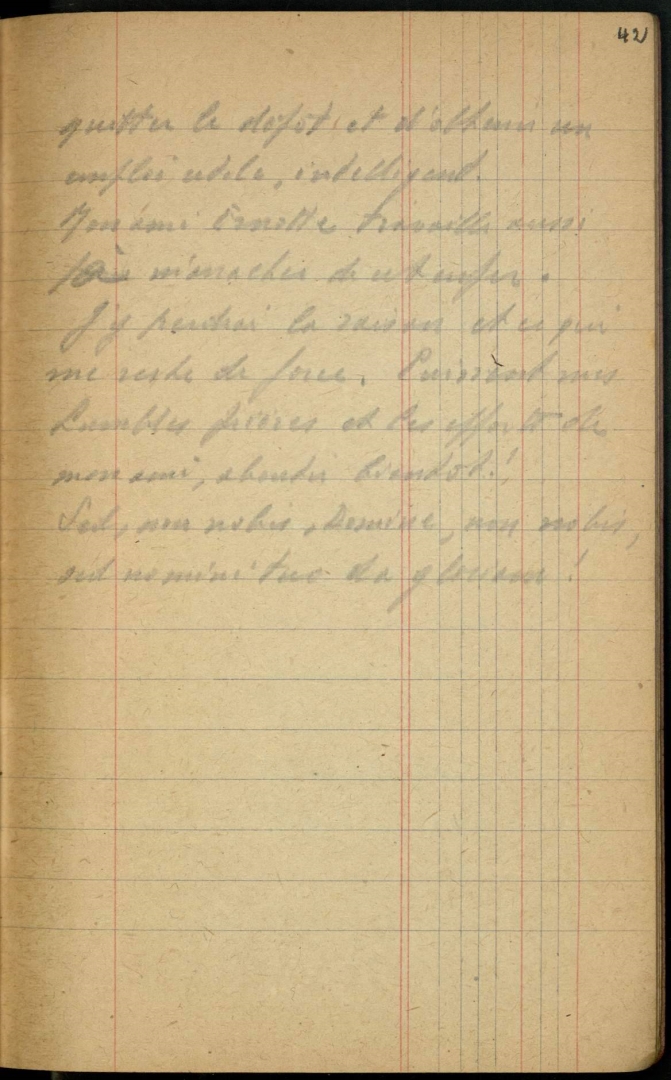 42
quitter le dépôt et d'obtenir un
emploi utile, intelligent.
Mon ami travaille aussi
à m'arracher de cet enfer.
J'y perdrai la raison et ce qui
me reste de force. Puissent mes
humbles prières et les efforts de
mon ami, aboutir bientôt!
Sed, non nobis, Domine, non nobis,
sed nomini tuo da gloriam!